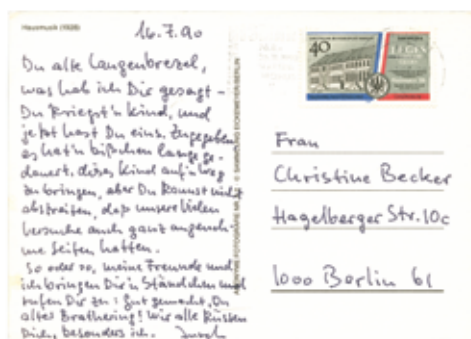 Hausmusik (1928)
16.7.90
Du alte Laugenbrezel,
was hab ich Dir gesagt –
Du kriegst'n Kind, und
jetzt hast Du eins. Zugegeben
es hat'n bißchen lange ge-
dauert, dieses Kind auf'n Weg
zu bringen, aber Du kannst nicht
abstreiten, daß unsere vielen
Versuche auch ganz angeneh-
me Seiten hatten.
So oder so, meine Freunde und
ich bringen Dir'n Ständchen und
rufen Dir zu: Gut gemacht, Du
alter Brathering! Wir alle küssen
Dich, besonders ich.
40
Frau
Christine Becker
Hagelberger Str. 10c
1000 Berlin 61